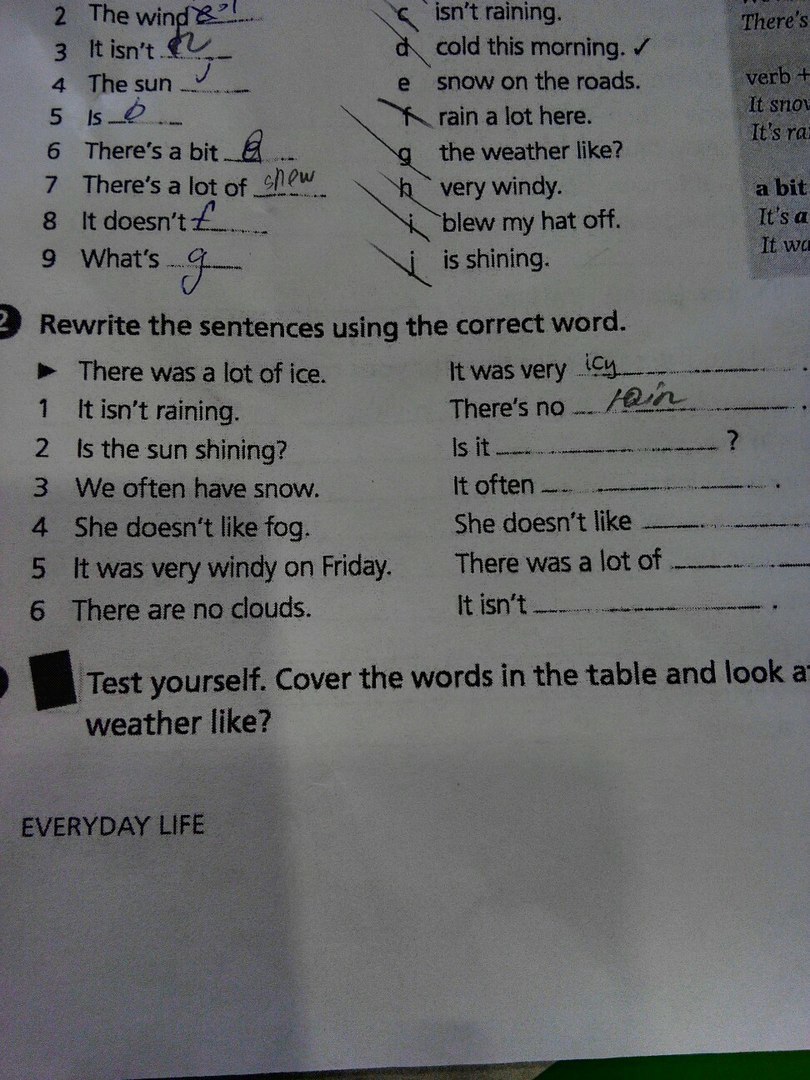 2 The wind c isn't raining.
There's
3 It isn't h d cold this morning. ✓
4 The sun j e snow on the roads.
verb +
5 Is b f rain a lot here.
It snow
6 There's a bit g the weather like?
It's rai
7 There's a lot of snow h very windy.
a bit
8 It doesn't f i blew my hat off.
It's a
9 What's g j is shining.
It wa
2 Rewrite the sentences using the correct word.
► There was a lot of ice. It was very icy .
1 It isn't raining. There's no rain .
2 Is the sun shining? Is it ?
3 We often have snow. It often .
4 She doesn't like fog. She doesn't like
5 It was very windy on Friday. There was a lot of
6 There are no clouds. It isn't .
Test yourself. Cover the words in the table and look at
weather like?
EVERYDAY LIFE